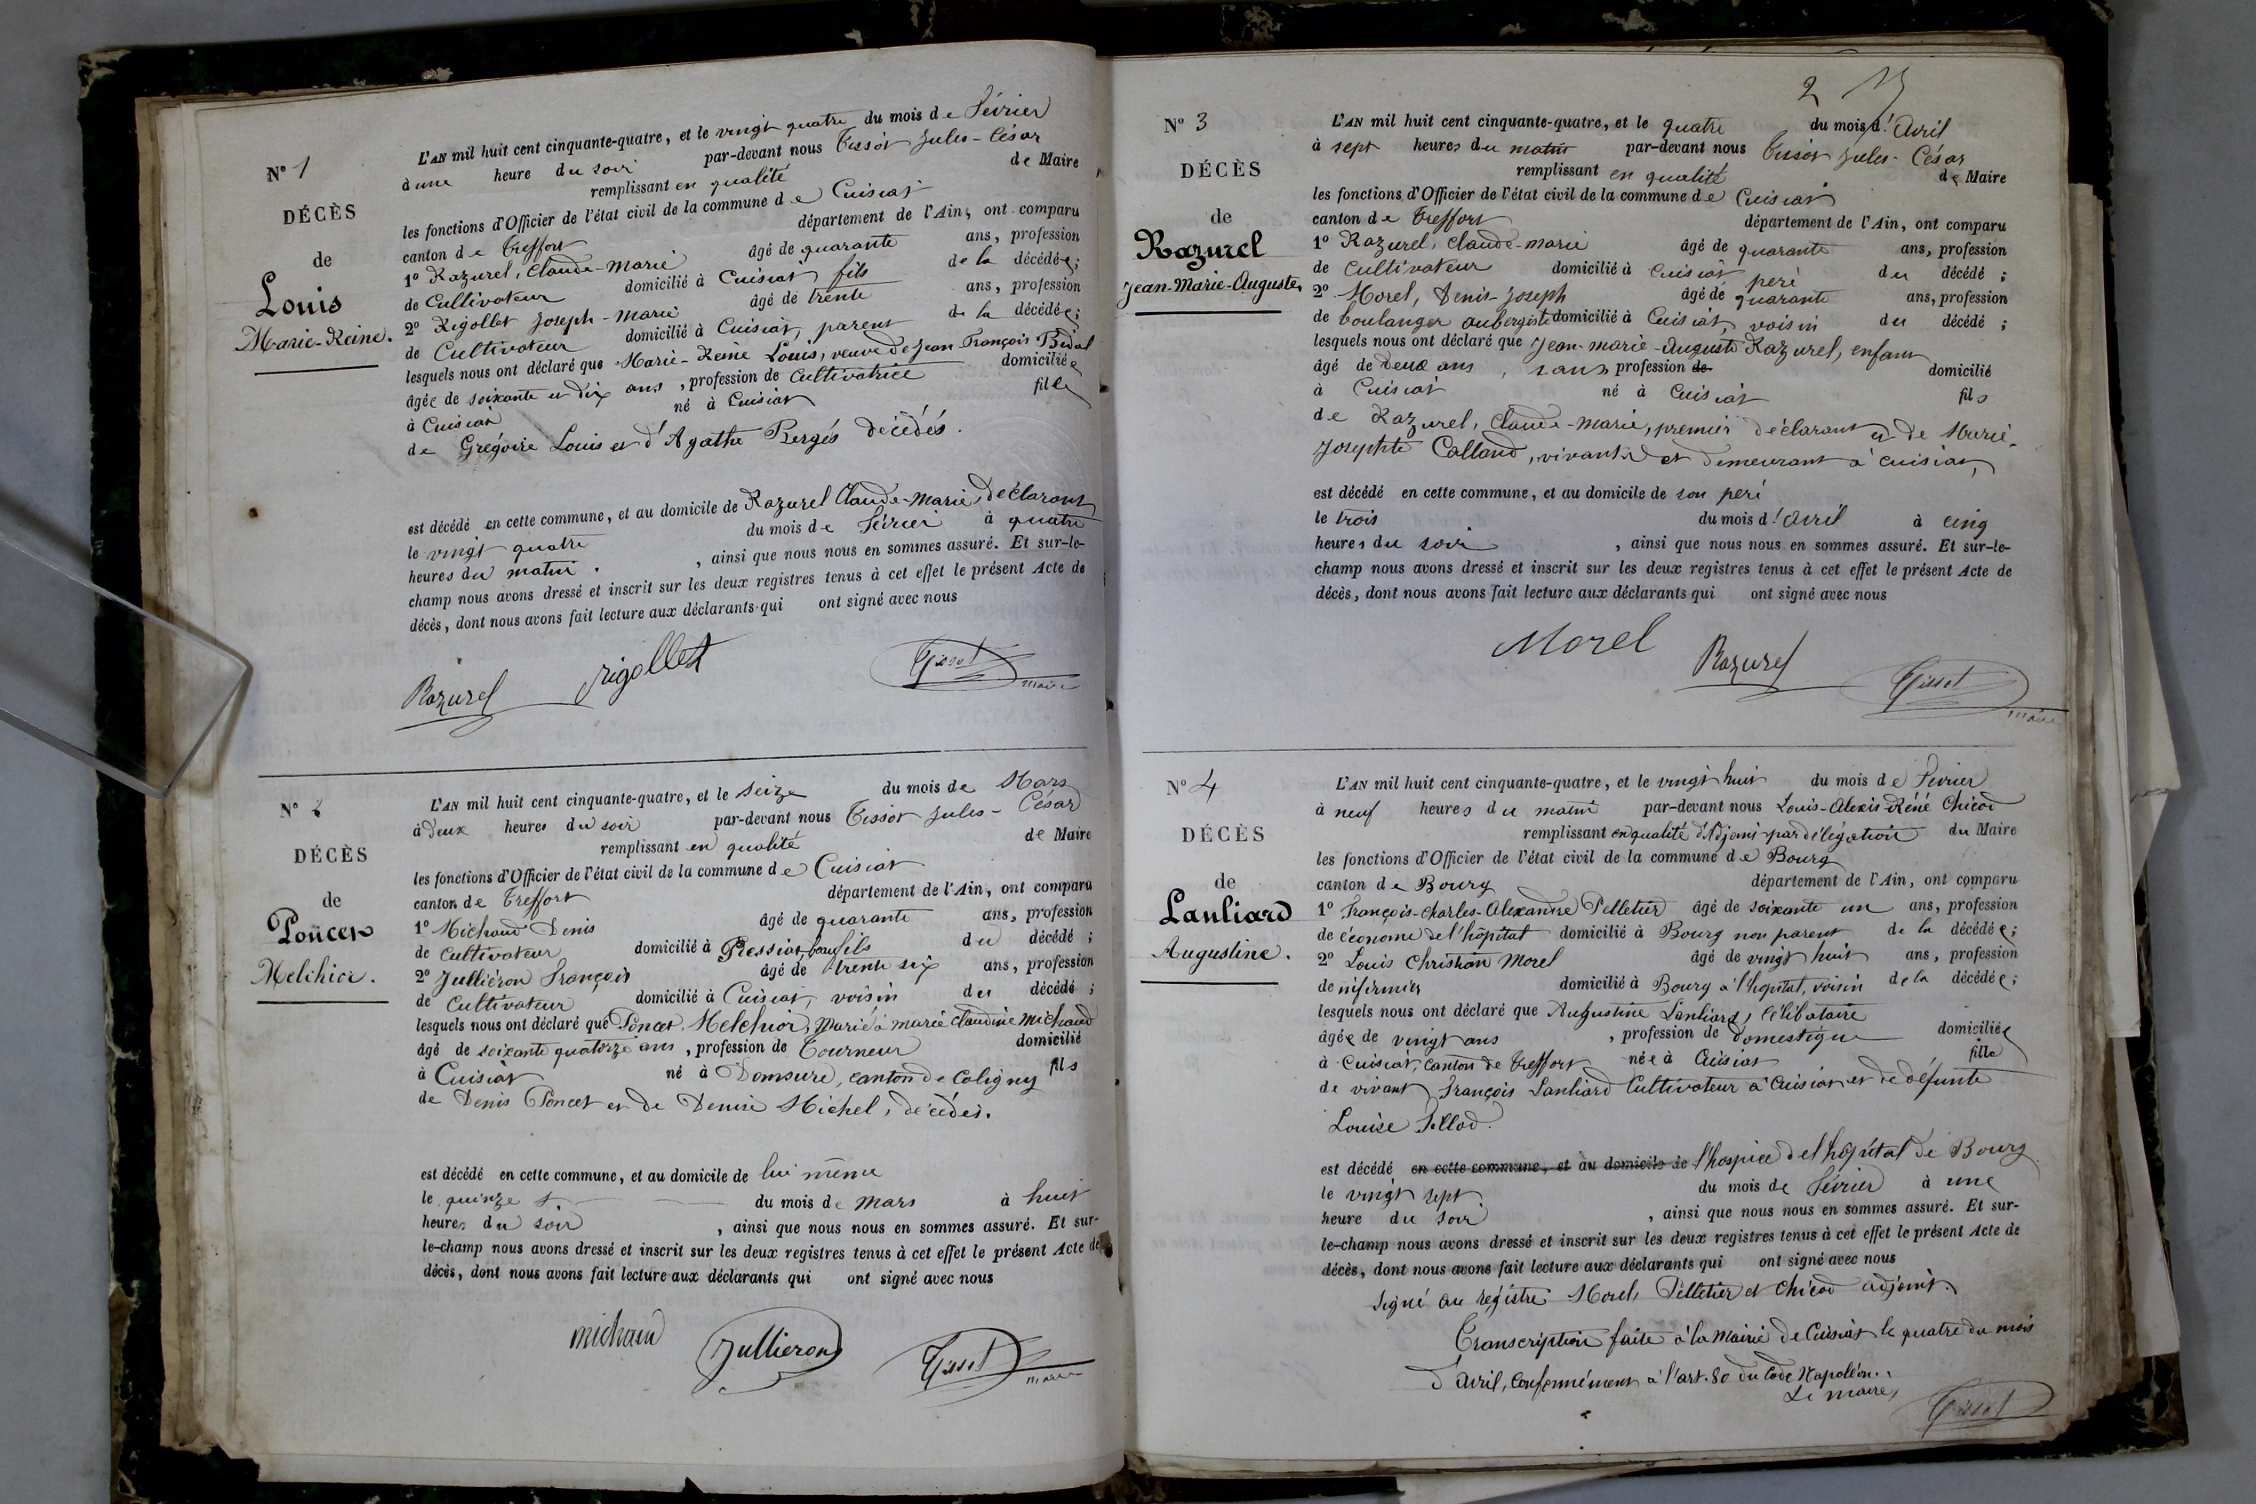 N° 1
DÉCÈS
de
Louis
Marie-Reine.
L'AN mil huit cent cinquante-quatre, et le vingt quatre du mois de Février
à une heure du soir par-devant nous Tissot Jules-César
remplissant en qualité de Maire
les fonctions d'Officier de l'état civil de la commune de Cuisiat
canton de Treffort département de l'Ain, ont comparu
1° Razurel, Claude-Marie âgé de quarante ans, profession
de Cultivateur domicilié à Cuisiat fils de la décédée;
2° Rigollet Joseph-Marie âgé de trente ans, profession
de Cultivateur domicilié à Cuisiat, parent de la décédée;
lesquels nous ont déclaré que Marie-Reine Louis, veuve de Jean François Bidal
âgée de soixante et dix ans, profession de Cultivatrice domiciliée
à Cuisiat né à Cuisiat fille
de Grégoire Louis et d'Agathe Bergés décédés.
est décédé en cette commune, et au domicile de Razurel Claude-Marie, déclarant
le vingt quatre du mois de Février à quatre
heures du matin. , ainsi que nous nous en sommes assuré. Et sur-le-
champ nous avons dressé et inscrit sur les deux registres tenus à cet effet le présent Acte de
décès, dont nous avons fait lecture aux déclarants qui ont signé avec nous
Razurel rigollet Tissot
maire
N° 2
DÉCÈS
de
Poncet
Melchior.
L'AN mil huit cent cinquante-quatre, et le seize du mois de Mars
à deux heures du soir par-devant nous Tissot Jules-César
remplissant en qualité de Maire
les fonctions d'Officier de l'état civil de la commune de Cuisiat
canton de Treffort département de l'Ain, ont comparu
1° Michaud Denis âgé de quarante ans, profession
de cultivateur domicilié à Pressiat, beau fils du décédé;
2° Julliéron François âgé de trente six ans, profession
de Cultivateur domicilié à Cuisiat, voisin du décédé;
lesquels nous ont déclaré que Poncet Melchior, marié à marie Claudine Michaud
âgé de soixante quatorze ans, profession de Tourneur domicilié
à Cuisiat né à Domsure, canton de Coligny fils
de Denis Poncet et de Denise Michel, décédés.
est décédé en cette commune, et au domicile de lui même
le quinze du mois de mars à huit
heures du soir , ainsi que nous nous en sommes assuré. Et sur-
le-champ nous avons dressé et inscrit sur les deux registres tenus à cet effet le présent Acte de
décès, dont nous avons fait lecture aux déclarants qui ont signé avec nous
michaud Jullieron Tissot
maire
2
N° 3
DÉCÈS
de
Razurel
Jean-Marie-Auguste,
L'AN mil huit cent cinquante-quatre, et le quatre du mois d'Avril
à sept heures du matin par-devant nous Tissot Jules-César
remplissant en qualité de Maire
les fonctions d'Officier de l'état civil de la commune de Cuisiat
canton de Treffort département de l'Ain, ont comparu
1° Razurel, Claude-marie âgé de quarante ans, profession
de Cultivateur domicilié à Cuisiat père du décédé;
2° Morel, Denis-Joseph âgé de quarante ans, profession
de boulanger aubergiste domicilié à Cuisiat, voisin du décédé;
lesquels nous ont déclaré que Jean-marie-Auguste Razurel, enfant
âgé de deux ans, sans profession de domicilié
à Cuisiat né à Cuisiat fils
de Razurel, Claude-marie, premier déclarant et de Marie-
Josephte Calland, vivants et demeurant à Cuisiat,
est décédé en cette commune, et au domicile de son père
le trois du mois d'avril à cinq
heures du soir , ainsi que nous nous en sommes assuré. Et sur-le-
champ nous avons dressé et inscrit sur les deux registres tenus à cet effet le présent Acte de
décès, dont nous avons fait lecture aux déclarants qui ont signé avec nous
Morel Razurel Tissot
maire
N° 4
DÉCÈS
de
Lanliard
Augustine.
L'AN mil huit cent cinquante-quatre, et le vingt huit du mois de Février
à neuf heures du matin par-devant nous Louis-Alexis-Réné Chicod
remplissant en qualité d'Adjoint par délégation du Maire
les fonctions d'Officier de l'état civil de la commune de Bourg
canton de Bourg département de l'Ain, ont comparu
1° François-Charles-Alexandre Pelletier âgé de soixante un ans, profession
de économe de l'hôpital domicilié à Bourg non parent de la décédée;
2° Louis Christian Morel âgé de vingt huit ans, profession
de infirmier domicilié à Bourg à l'hôpital, voisin de la décédée;
lesquels nous ont déclaré que Augustine Lanliard, célibataire
âgée de vingt ans , profession de domestique domiciliée
à Cuisiat, canton de Treffort née à Cuisiat fille
de vivant François Lanliard Cultivateur à Cuisiat et de défunte
Louise Pillod.
est décédé en cette commune, et au domicile de l'hospice de l'hôpital de Bourg
le vingt sept du mois de Février à une
heure du soir , ainsi que nous nous en sommes assuré. Et sur-
le-champ nous avons dressé et inscrit sur les deux registres tenus à cet effet le présent Acte de
décès, dont nous avons fait lecture aux déclarants qui ont signé avec nous
Signé au registre Morel, Pelletier et Chicod adjoint.
Transcription faite à la Mairie de Cuisiat le quatre du mois
d'avril, conformément à l'art. 80 du Code Napoléon.
Le maire,
Tissot